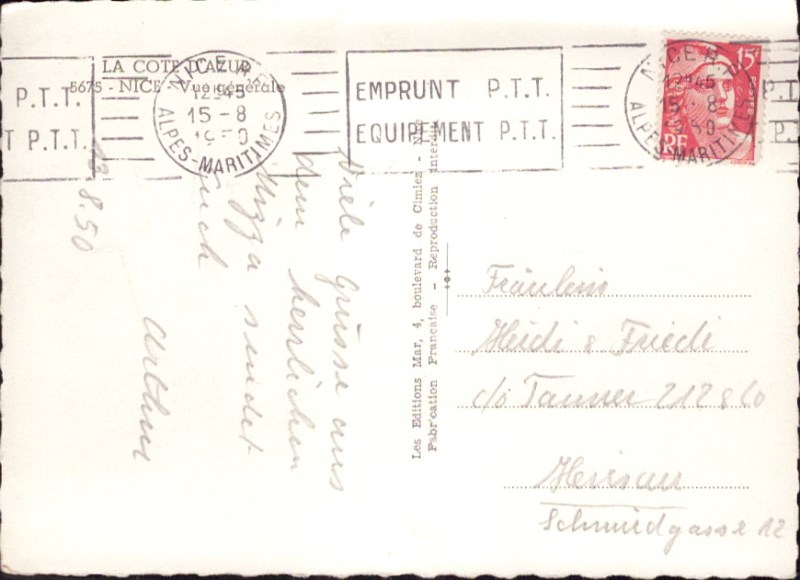 LA COTE D'AZUR
5675 - NICE - Vue générale
P.T.T.
T P.T.T.
NICE R.P.
12H45
15 - 8
1950
ALPES-MARITIMES
EMPRUNT P.T.T.
EQUIPEMENT P.T.T.
NICE R.P.
12H45
15 8
1950
ALPES-MARITIMES
15f
RF
13.8.50
Viele Grüsse aus
dem herrlichen
Nizza sendet
Euch
Arthur
Les Editions Mar, 4, boulevard de Cimiez - Nice
Fabrication Française - Reproduction interdite
Fräulein
Heidi & Friedi
c/o Tanner
Herisau
Schmiedgasse 12